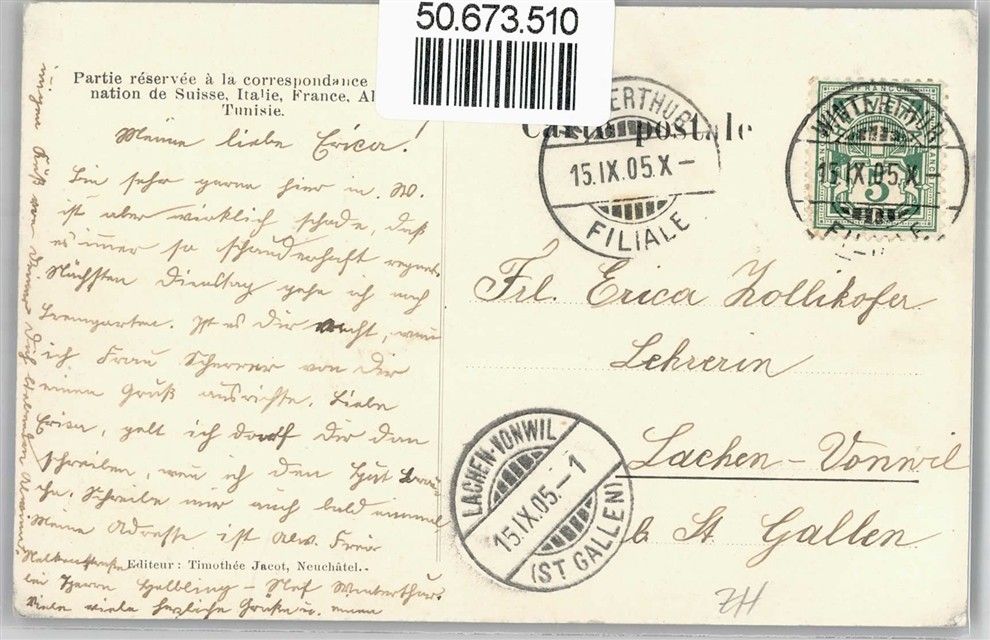 50.673.510
Partie réservée à la correspondance
nation de Suisse, Italie, France, Al
Tunisie.
Carte postale
Meine liebe Erica.
Bin sehr gerne hier in W.
ist aber wirklich schade, daß
es immer so schauderhaft regnet.
Nächsten Dienstag gehe ich nach
Bremgarten. Ist es Dir recht, wenn
ich Frau Scherrer von Dir
einen Gruß ausrichte. Liebe
Erica, gelt ich darf Dir dan
schreiben, wen ich den Hut
Schreibe mir auch bald einmal
Meine Adresse ist
Editeur: Timothée Jacot, Neuchâtel.
bei Herrn Helbling-Nef Winterthur.
Viele viele herzliche Grüße u. einen
innigen Kuß von Deiner Dich liebenden
WINTERTHUR
15.IX.05.X–
FILIALE
FRANCO
5
WINTERTHUR
15.IX.05.X–
FILIALE
Frl. Erica Zollikofer
Lehrerin
Lachen-Vonwil
b St. Gallen.
LACHEN-VONWIL
15.IX.05.–1
(ST GALLEN)
ZH